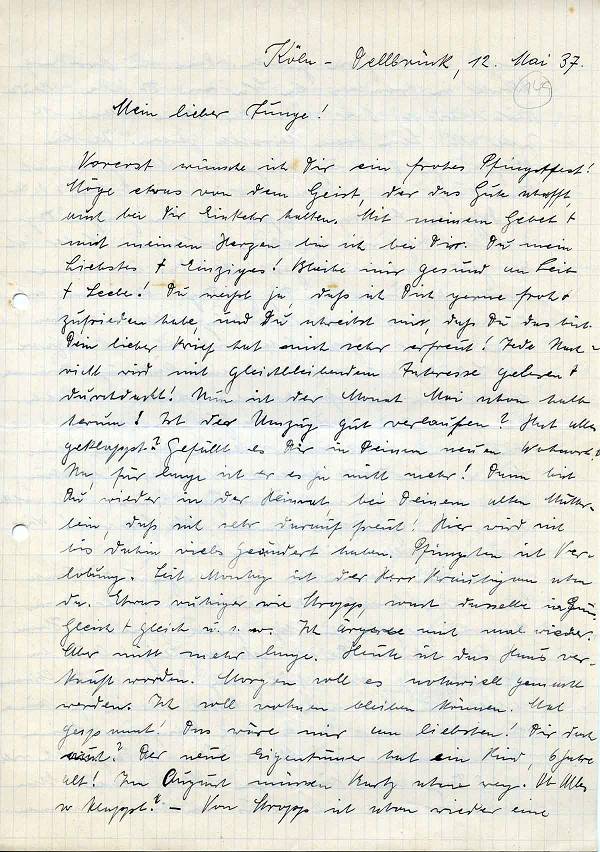 Köln - Dellbrück, 12. Mai 37.
Mein lieber Junge!
Vorerst wünsche ich Dir ein frohes Pfingstfest!
Möge etwas von dem Geist, der das Gute schafft
auch bei Dir Einkehr halten. Mit meinem Gebet +
mit meinem Herzen bin ich bei Dir. Du mein
Liebstes + Einziges! Bleibe mir gesund an Leib
+ Seele! Du weißt ja, daß ich Dich gerne froh +
zufrieden habe, und Du schreibst mir, daß Du das bist.
Dein lieber Brief hat mich sehr erfreut! Jede Nach-
richt wird mit gleichbleibendem Interesse gelesen +
durchdacht! Nun ist der Monat Mai schon halb
herum! Ist der Umzug gut verlaufen? Hat alles
geklappt? Gefällt es Dir in Deinem neuen Wohnort?
Na, für lange ist er es ja nicht mehr! Dann bist
Du wieder in der Heimat, bei Deinem alten Mütter-
lein, daß sich sehr darauf freut! Hier wird sich
bis dahin vieles geändert haben. Pfingsten ist Ver-
lobung. Seit Montag ist der Herr Bräutigam schon
da. Etwas ruhiger wie Stropp, sonst dasselbe in Grün.
Gleich + gleich u. s. w. Ich ärgere mich mal wieder.
Aber nicht mehr lange. Heute ist das Haus ver-
kauft worden. Morgen soll es notariell gemacht
werden. Ich soll wohnen bleiben können. Mal
gespannt! Das wäre mir am liebsten! Dir doch
auch? Der neue Eigentümer hat ein Kind, 6 Jahre
alt! Im August müssen Kurtz ohne weg. Ob Alles
so klappt? - Von Stropp ist schon wieder eine